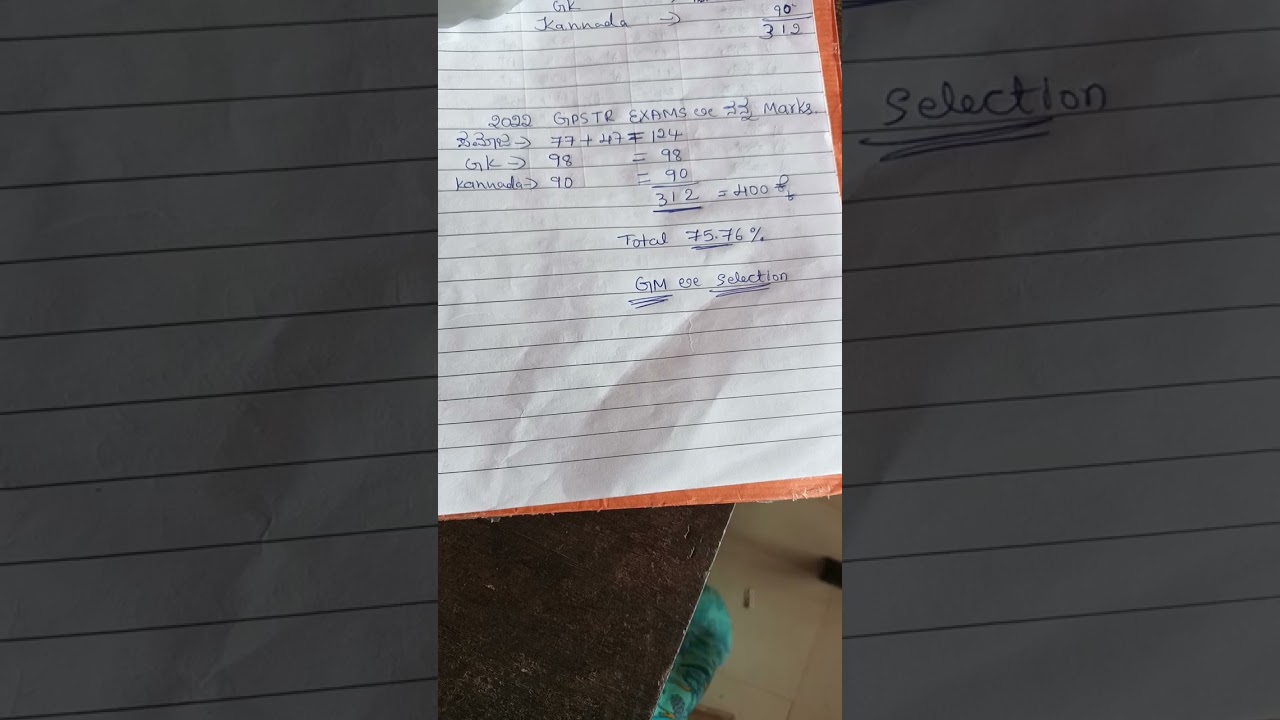 GK
Kannada → 90
312
2022 GPSTR EXAMS ಲಿ ನನ್ನ Marks.
77 + 47 = 124
GK → 98 = 98
Kannada → 90 = 90
312 = 400
Total 75.76%
GM ಲಿ Selection
Selection